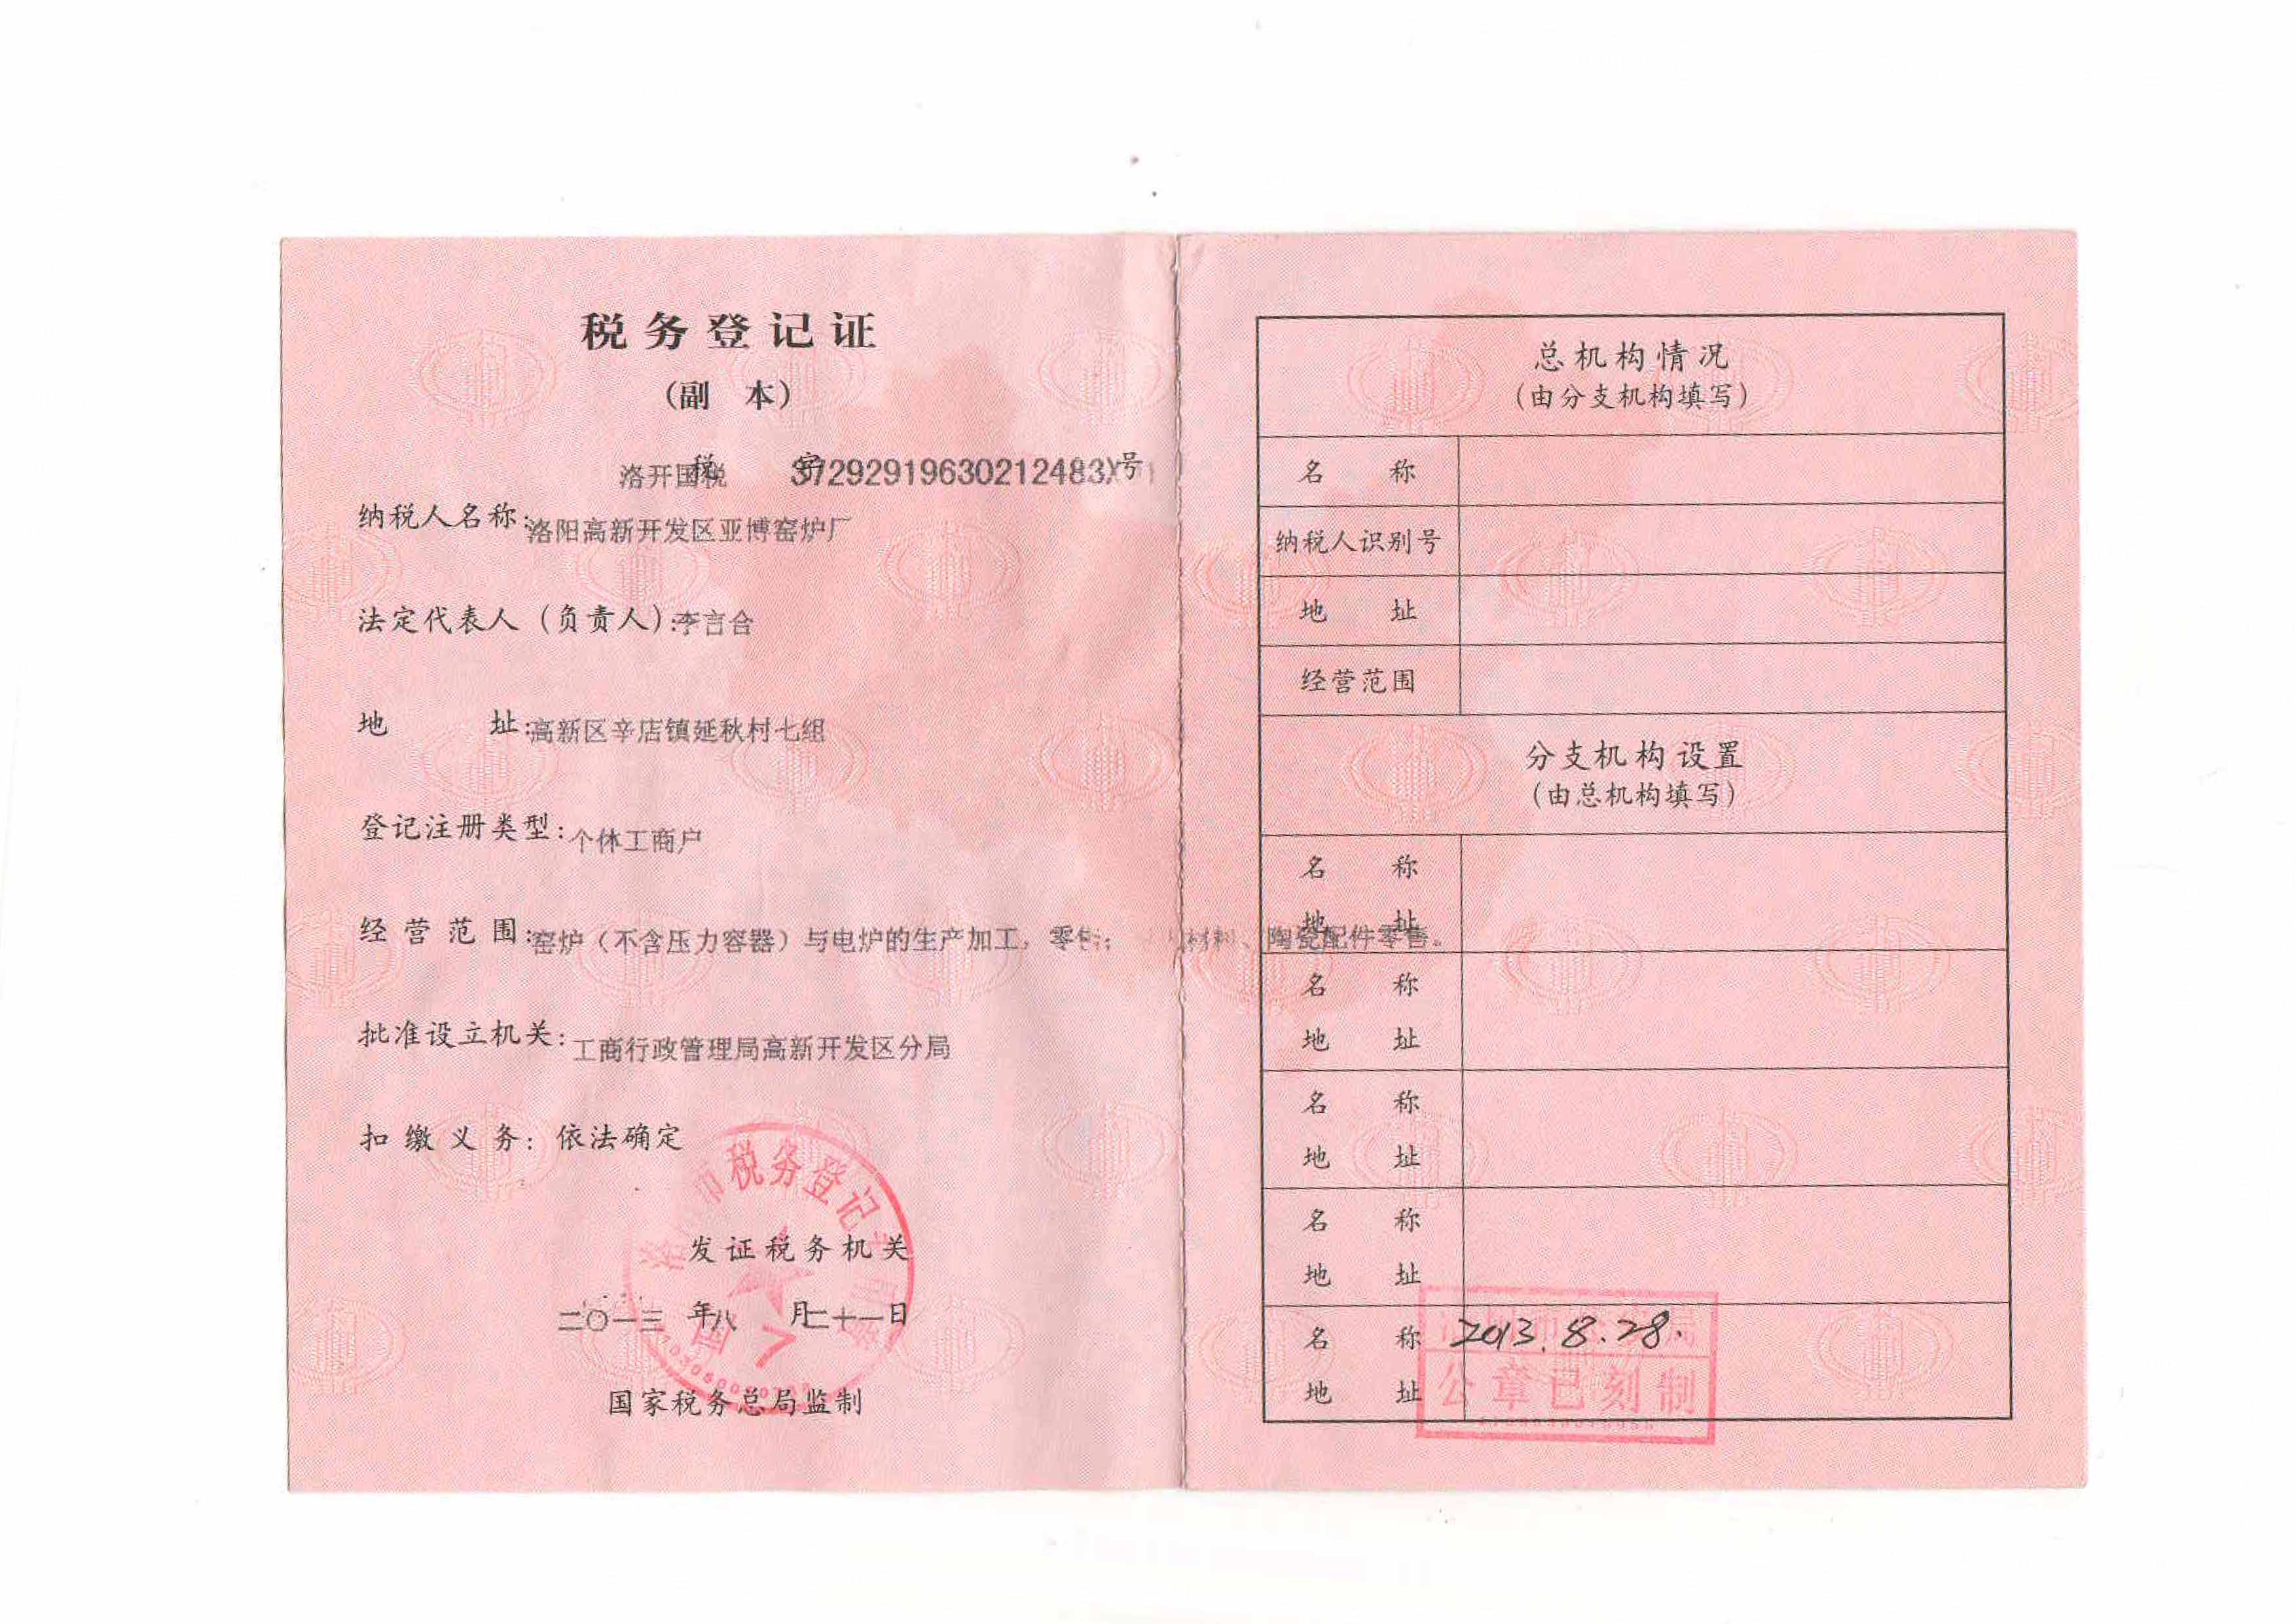 税务登记证
(副 本)
洛开国税 税 字 37292919630212483X 号
纳税人名称:洛阳高新开发区亚博窑炉厂
法定代表人(负责人):李言合
地 址:高新区辛店镇延秋村七组
登记注册类型:个体工商户
经营范围:窑炉(不含压力容器)与电炉的生产加工,零售; 材料、陶瓷配件零售。
批准设立机关:工商行政管理局高新开发区分局
扣缴义务:依法确定
市税务登记
发证税务机关
二〇一三 年八 月二十一日
国家税务总局监制
总机构情况
(由分支机构填写)
名 称
纳税人识别号
地 址
经营范围
分支机构设置
(由总机构填写)
名 称
地 址
名 称
地 址
名 称
地 址
名 称
地 址
名 称 2013.8.28.
地 址
公章已刻制